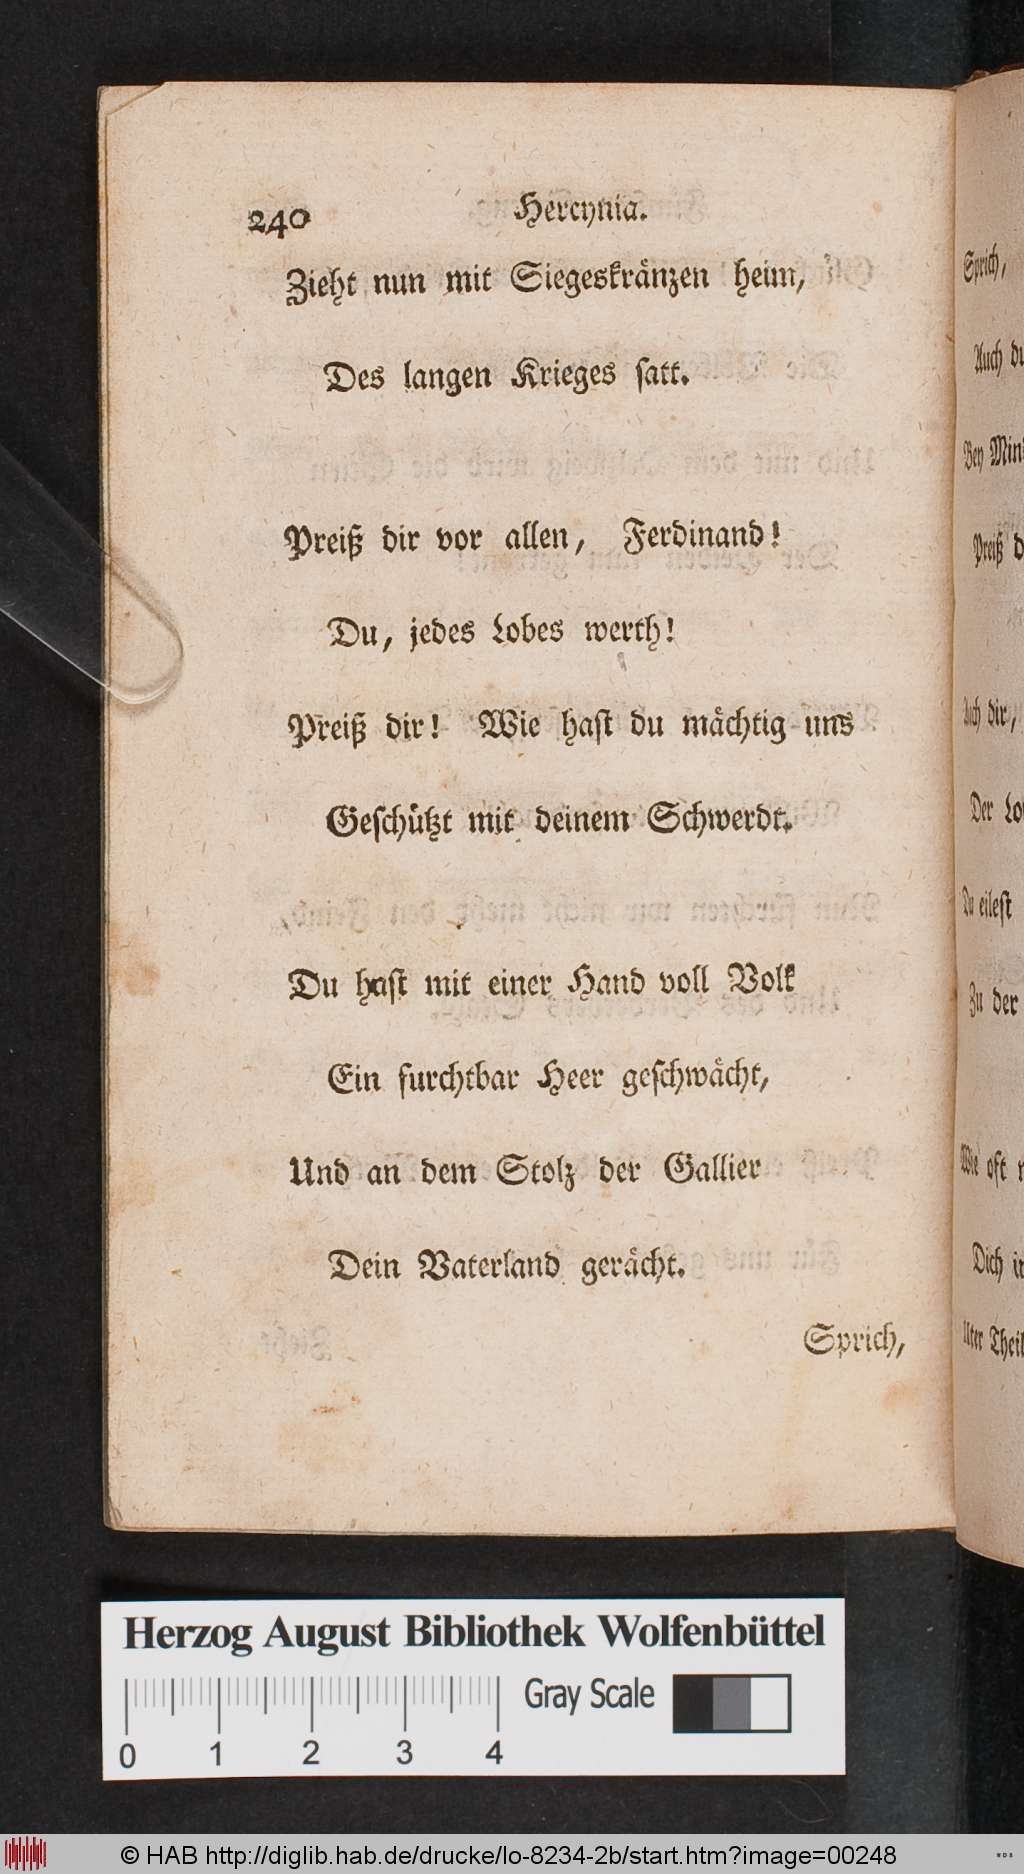 240 Hercynia.
Zieht nun mit Siegeskränzen heim,
Des langen Krieges ſatt.
Preiß dir vor allen, Ferdinand!
Du, jedes Lobes werth!
Preiß dir! Wie haſt du mächtig uns
Geſchützt mit deinem Schwerdt.
Du haſt mit einer Hand voll Volk
Ein furchtbar Heer geſchwächt,
Und an dem Stolz der Gallier
Dein Vaterland gerächt.
Sprich,
Sprich,
Auch
Bey
Preiß
Auch dir,
Der
Du eileſt
Zu der
Wie oft
Dich
Herzog August Bibliothek Wolfenbüttel
Gray Scale
0 1 2 3 4
© HAB http://diglib.hab.de/drucke/lo-8234-2b/start.htm?image=00248